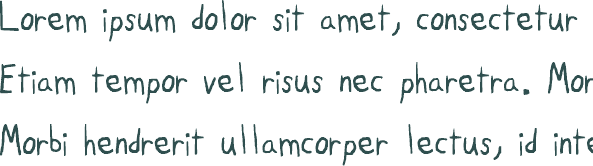 Lorem ipsum dolor sit amet, consectetur
Etiam tempor vel risus nec pharetra. Mor
Morbi hendrerit ullamcorper lectus, id inte